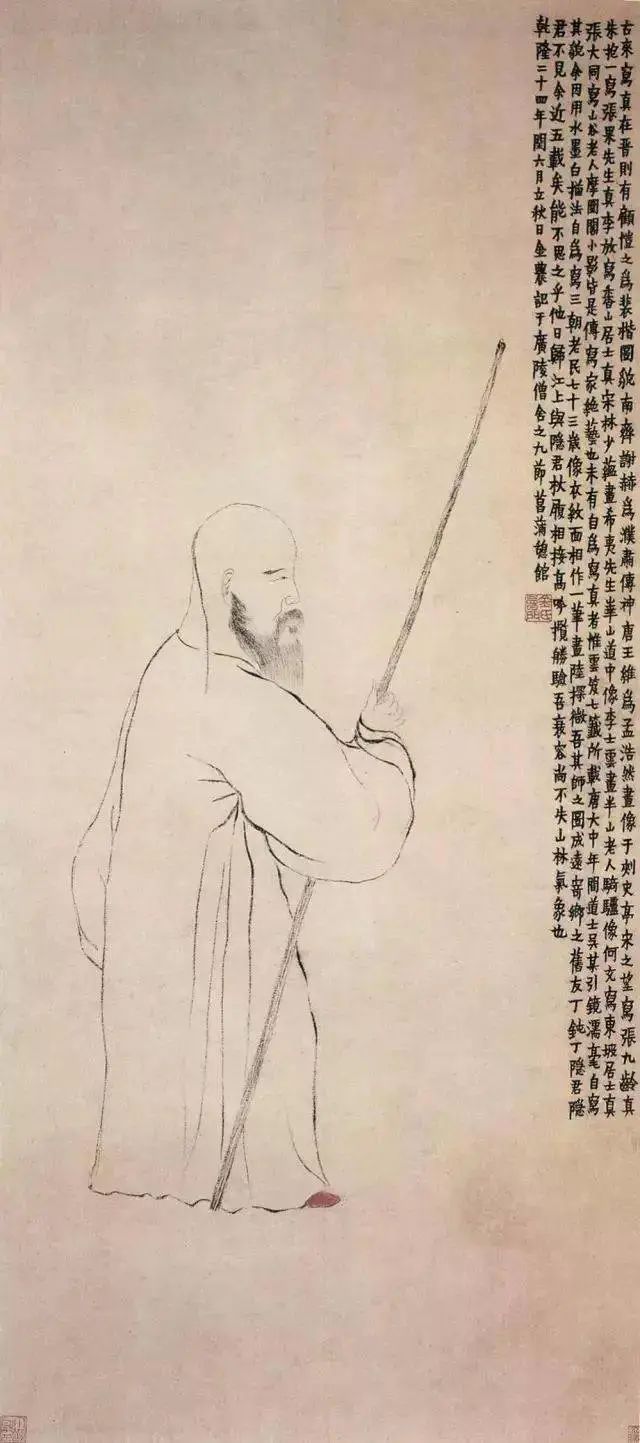 古來寫真在晋則有顧愷之為裴楷圖貌南齊謝赫為濮肅傳神唐王維為孟浩然畫像于刺史亭宋之望寫張九齡真
朱抱一寫張果先生真李放寫香山居士真宋林少蘊畫希夷先生華山道中像李士雲畫半山老人騎驢像何充寫東坡居士真
張大同寫山谷老人摩圍閣小影皆是傳寫家絶藝也未有自為寫真者惟雲笈七籤所載唐大中年間道士吳某引鏡濡毫自寫
其貌余因用水墨白描法自為寫三朝老民七十三歲像衣紋面相作一筆畫陸探微吾其師之圖成遠寄鄉之舊友丁鈍丁隱君隱
君不見余近五載矣能不思之乎他日歸江上與隱君杖履相接高吟攬勝驗吾衰容尚不失山林氣象也
乾隆二十四年閏六月立秋日金農記于廣陵僧舍之九節菖蒲憩館